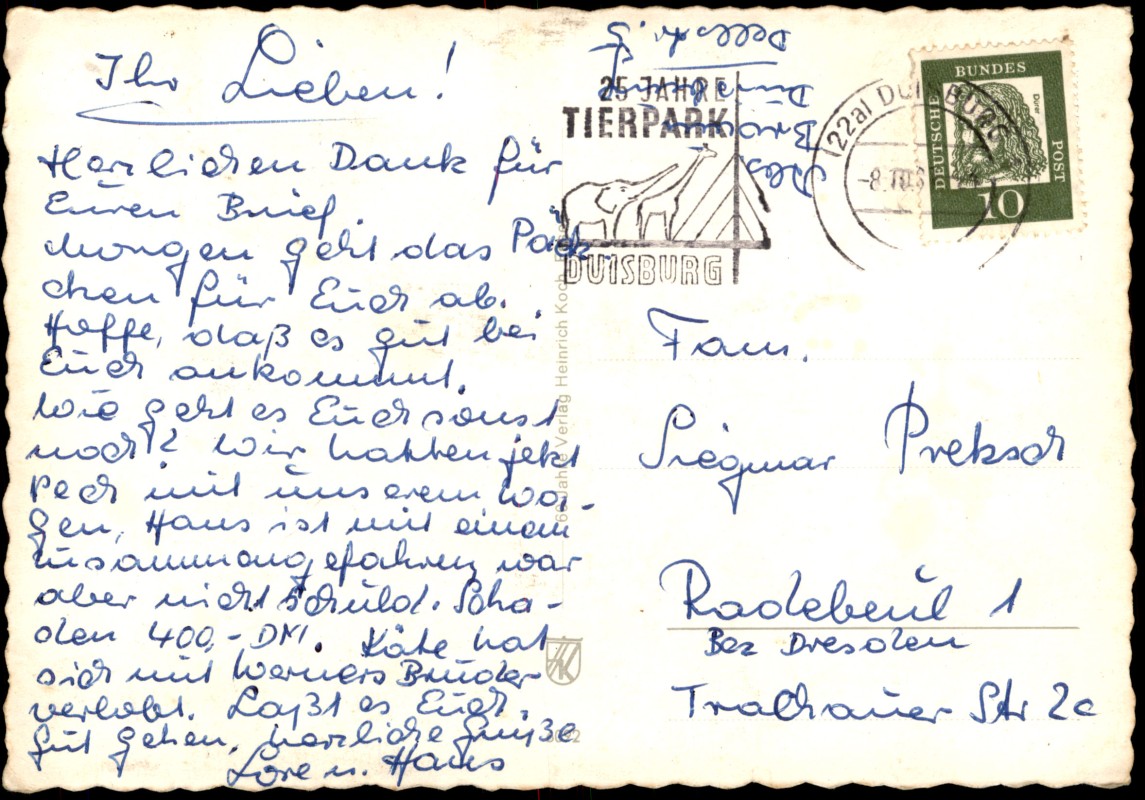 Ihr Lieben!
Herzlichen Dank für
Euren Brief.
Morgen geht das Päck-
chen für Euch ab.
Hoffe, daß es gut bei
Euch ankommt.
Wie geht es Euch sonst
noch? Wir hatten jetzt
Pech mit unserem Wa-
gen, Hans ist mit einem
zusammengefahren, war
aber nicht Schuld. Scha-
den 400,- DM. Käte hat
sich mit Werners Bruder
verlobt. Laßt es Euch
gut gehen, herzliche Grüße
Lore u. Hans
Abs
Duisburg
Dellstr. 9
25 JAHRE
TIERPARK
DUISBURG
(22a) DUISBURG
DEUTSCHE BUNDES POST
Dürer
10
Jahre Verlag Heinrich Koch
HK
Fam.
Siegmar Preksch
Radebeul 1
Bez Dresden
Trachauer Str 2c